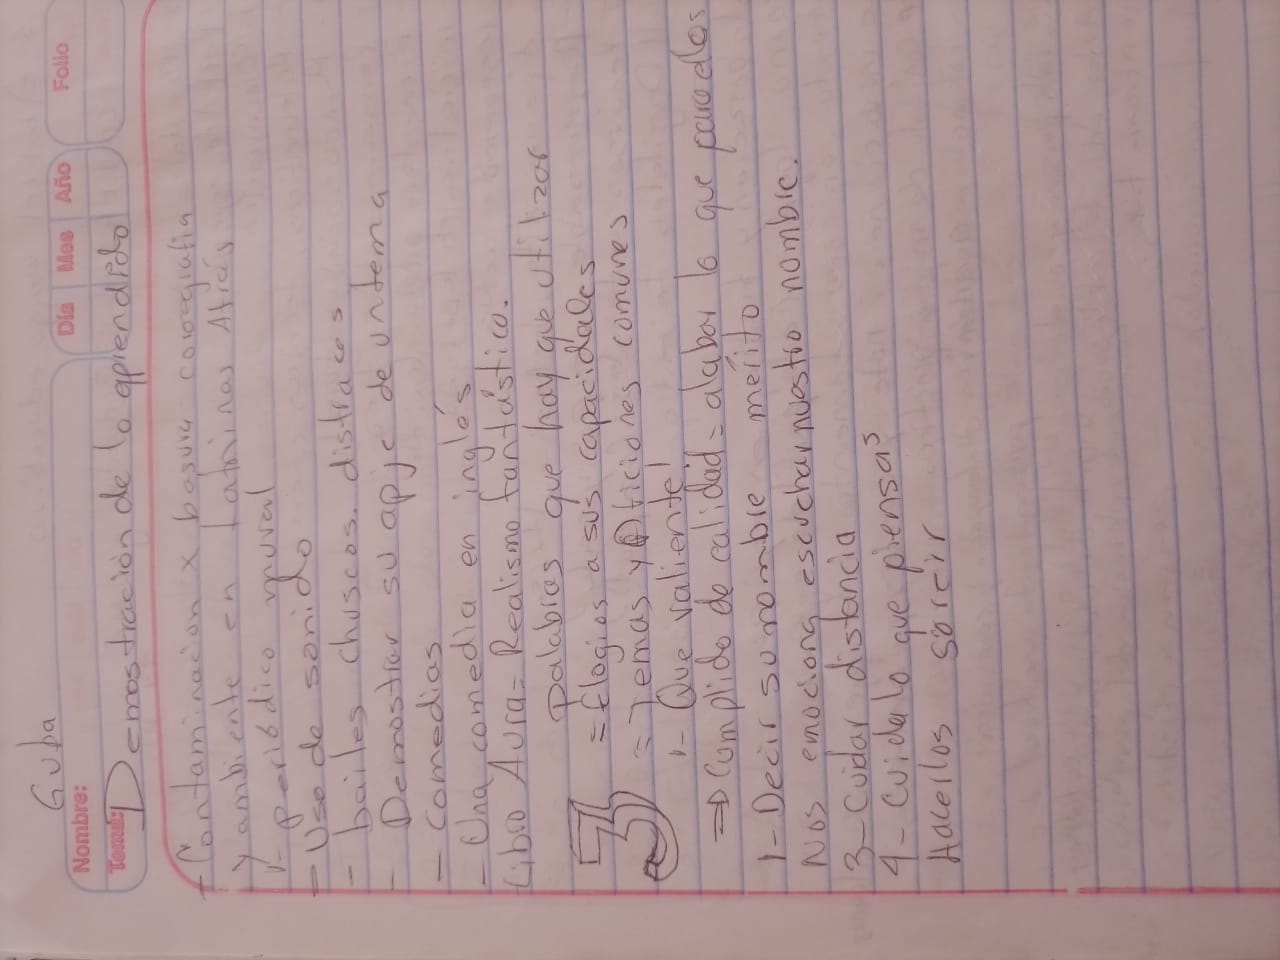 Guba
Nombre:
Día Mes Año Folio
Tema: Demostración de lo aprendido
- Contaminacion x basura coreografia
y ambiente en Latrinas Atrás
1- periódico mural
- Uso de sonido
- bailes chuscos. distraces
- Demostrar su apje de untema
- comedias
- Una comedia en inglés
Libro Aura= Realismo fantástico.
Palabras que hay que utilizar
= Elogios a sus capacidades
= Temas y Aficiones comunes
1- Que valiente!
=> Cumplido de calidad = alabar lo que para
1- Decir su nombre mérito
Nos emociona escuchar nuestro nombre.
3- Cuidar distancia
4- Cuidalo que piensas
Hacerlos sorreir